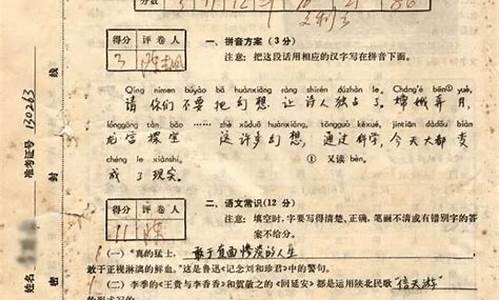 分数
得分 评卷人
3
一、拼音方案(3分)
注意:把这段话用相应的汉字写在拼音下面。
Qǐng nǐmen bùyào bǎ huànxiǎng ràng shīrén dúzhàn le. Cháng'é bèn① yuè,
请 你们 不要 把 幻想 让 诗人 独占 了。嫦娥 奔 月,
lónggōng tàn bǎo …… zhè xǔduō huànxiǎng, tōngguò kēxué, jīntiān dàdōu biàn
龙宫 探宝 …… 这 许多 幻想,通过 科学,今天 大都 变
chéng le xiànshí.
成 了 现实。
①又读 bēn.
得分 评卷人
11
二、语文常识(12分)
注意:填空时,字要写得清楚、正确,笔画不清或有错别字的答
案不给分。
(一)“真的猛士,敢于直面惨淡的人生,
敢于正视淋漓的鲜血。”这是鲁迅《记念刘和珍君》中的警句。
(二)李季的《王贵与李香香》和贺敬之的《回延安》都是运用陕北民歌“信天游”
的形式写的
准考证号 150263
姓名
密 封 线